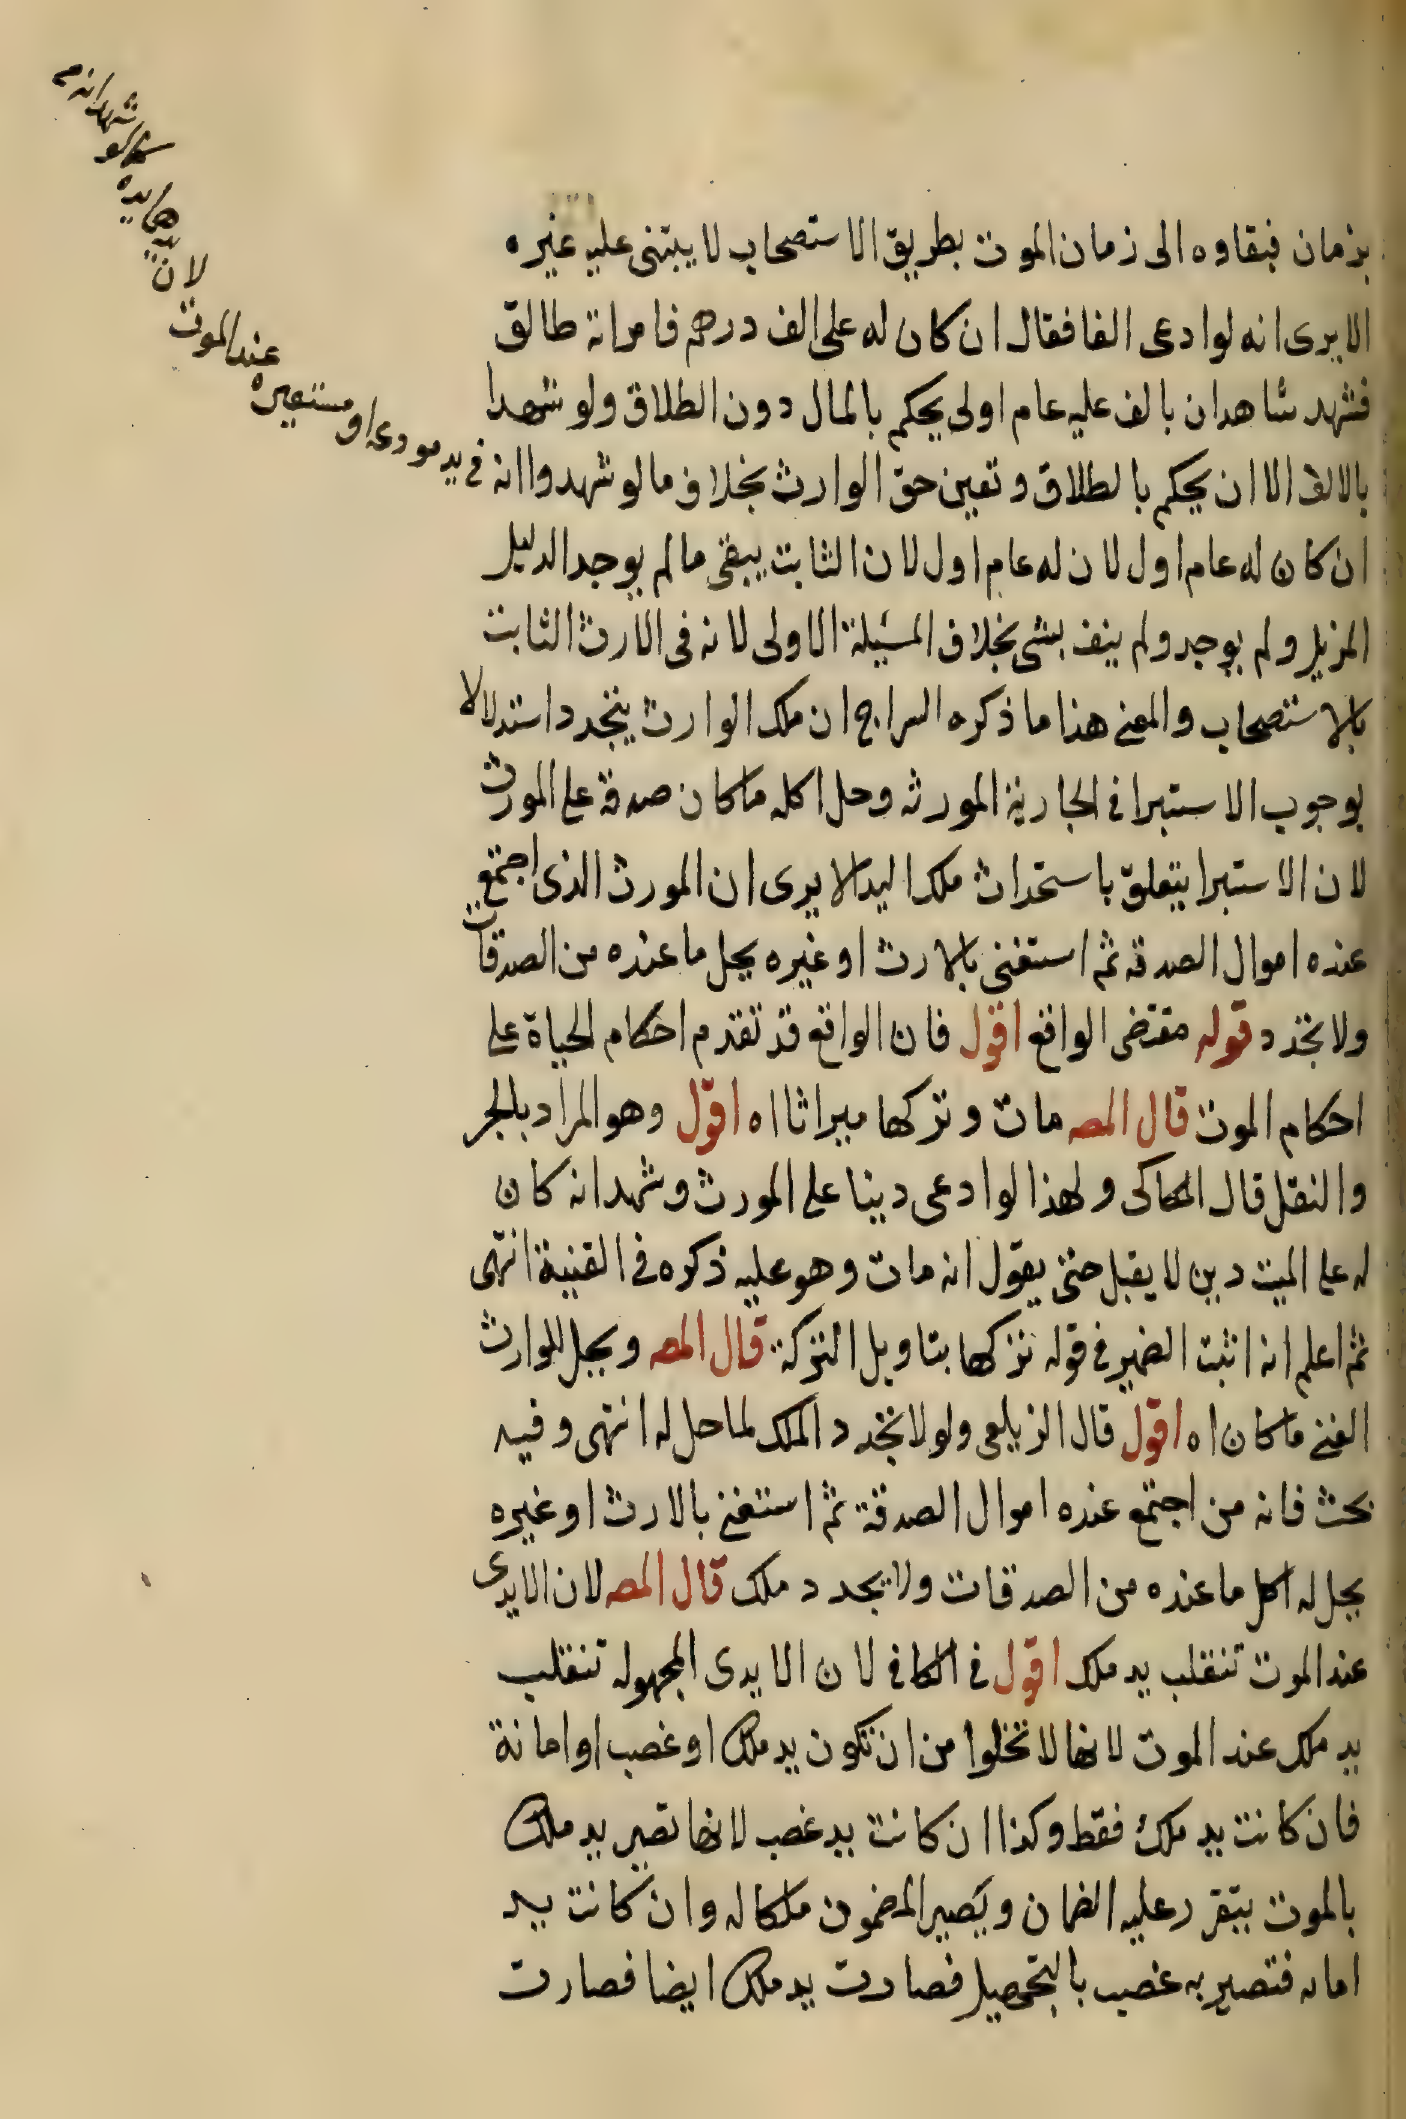 بزمان فبقاوه الى زمان الموت بطريق الاستصحاب لا يبتنى عليه غيره
الا يرى انه لو ادعى الفا فقال ان كان له على الف درهم فامراته طالق
فشهد شاهدان بالف عليه عام اولى يحكم بالمال دون الطلاق ولو شهدا
بالالف الا ان يحكم بالطلاق وتعين حق الوارث بخلاف ما لو شهدوا انه في يد مودعه او مستعيره
عند الموت
لان يده كايده
كما لو شهد انه م
ان كان له عام اول لان له عام اول لان الثابت يبقى ما لم يوجد الدليل
المزيل ولم يوجد ولم ينف بشى بخلاف المسئلة الاولى لانه فى الارث الثابت
بالاستصحاب والمعنى هذا ما ذكره السراج ان ملك الوارث يتجدد استدلالا
بوجوب الاستبرا في الجارية المورثه وحل اكله ما كان صدقة على المورث
لان الاستبرا يتعلق باستحداث ملك اليد الا يرى ان المورث الذى اجتمع
عنده اموال الصدقه ثم استغنى بالارث او غيره يحل ما عنده من الصدقات
ولا تجدد قوله مقتضى الواقع اقول فان الواقع قد تقدم احكام الحياة على
احكام الموت قال المصه مات وتركها ميراثا اه اقول وهو المراد بالجر
والنقل قال الكاكى ولهذا لو ادعى دينا على المورث وشهد انه كان
له على الميت دين لا يقبل حتى يقول انه مات وهو عليه ذكره في القنية انتهى
ثم اعلم انه انثت الضمير في قوله تركها بتاويل التركة قال المصه ويحل للوارث
الغنى ما كان اه اقول قال الزيلعى ولو لا تجدد الملك لما حل له انتهى وفيه
بحث فانه من اجتمع عنده اموال الصدقة ثم استغنى بالارث او غيره
يحل له اكل ما عنده من الصدقات ولا يجدد ملك قال المصه لان الايدى
عند الموت تنقلب يد ملك اقول في الكافي لان الايدى المجهوله تنقلب
يد ملك عند الموت لانها لا تخلوا من ان تكون يد ملك او غصب او امانة
فان كانت يد ملك فقط وكذا ان كانت يد غصب لانها تصير يد ملك
بالموت يتقرر عليه الضمان ويصير المضمون ملكا له وان كانت يد
امانه فتصير به غصب بالتجهيل فصارت يد ملك ايضا فصارت